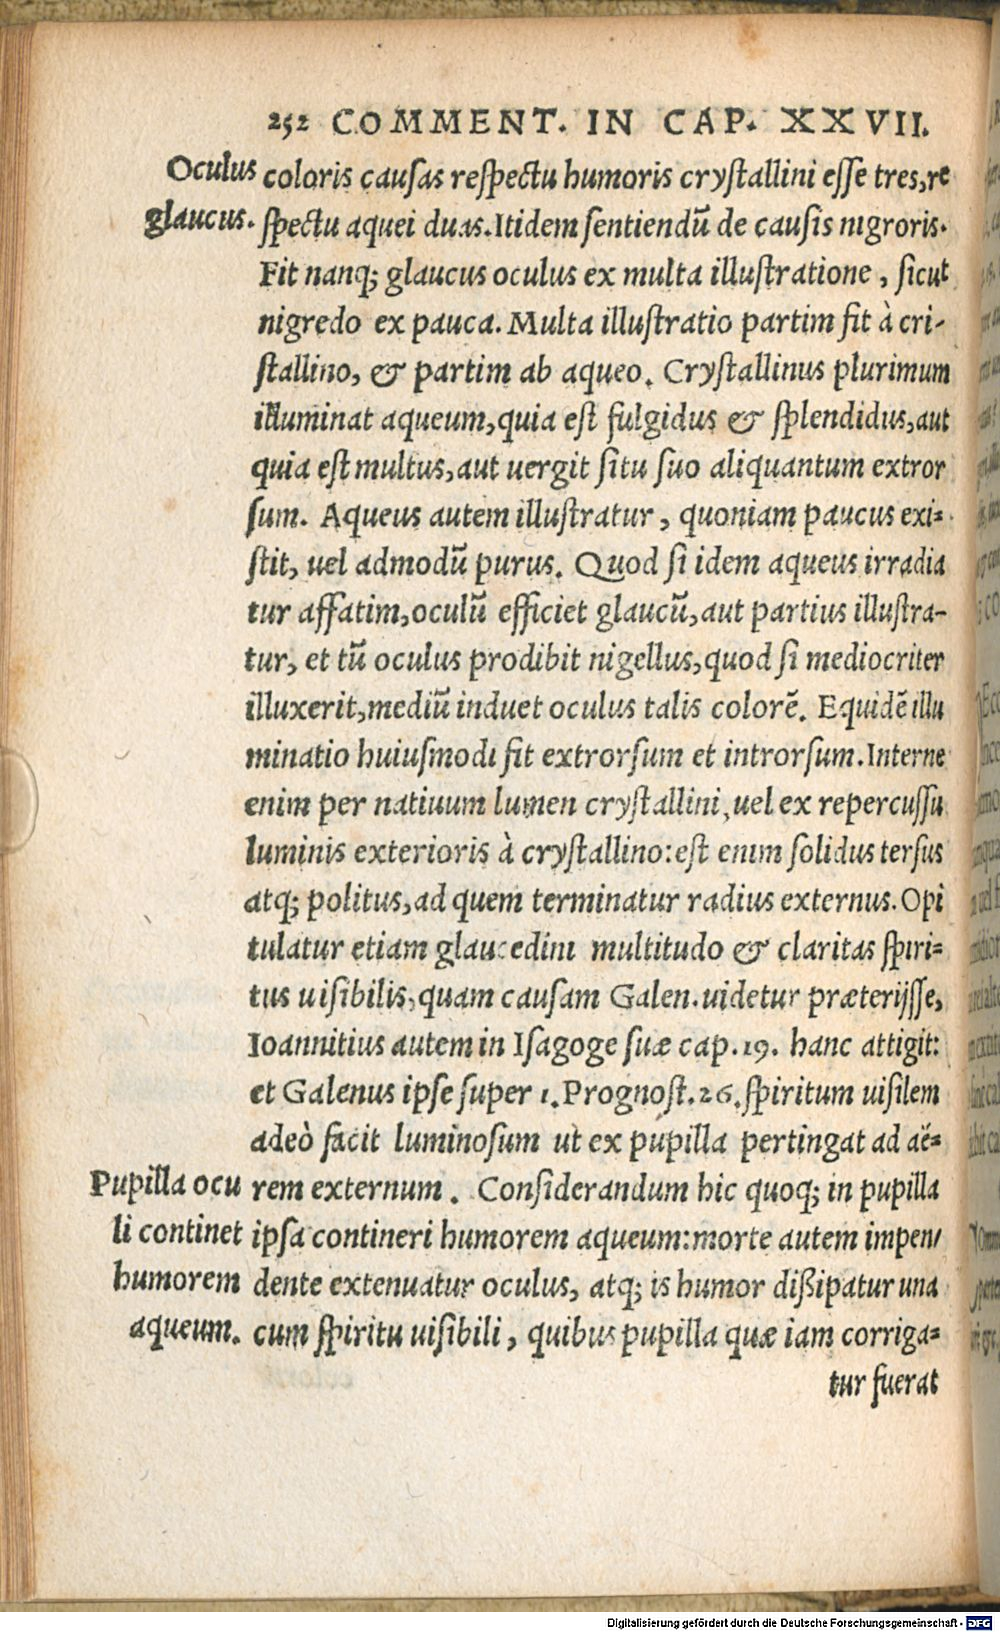 252 COMMENT. IN CAP. XXVII.
Oculus
glaucus.
coloris causas respectu humoris crystallini esse tres,re
spectu aquei duas.Itidem sentiendū de causis nigroris.
Fit nanq; glaucus oculus ex multa illustratione , sicut
nigredo ex pauca. Multa illustratio partim fit à cri-
stallino, & partim ab aqueo. Crystallinus plurimum
illuminat aqueum,quia est fulgidus & splendidus,aut
quia est multus,aut uergit situ suo aliquantum extror
sum. Aqueus autem illustratur , quoniam paucus exi=
stit, uel admodū purus. Quod si idem aqueus irradia
tur affatim,oculū efficiet glaucū,aut partius illustra-
tur, et tū oculus prodibit nigellus,quod si mediocriter
illuxerit,mediū induet oculus talis colorē. Equidē illu
minatio huiusmodi fit extrorsum et introrsum.Interne
enim per natiuum lumen crystallini,uel ex repercussu
luminis exterioris à crystallino:est enim solidus tersus
atq; politus,ad quem terminatur radius externus.Opi
tulatur etiam glaucedini multitudo & claritas spiri=
tus uisibilis,quam causam Galen.uidetur præterijsse,
Ioannitius autem in Isagoge suæ cap.19. hanc attigit:
et Galenus ipse super 1.Prognost.26.spiritum uisilem
adeò facit luminosum ut ex pupilla pertingat ad aë=
rem externum . Considerandum hic quoq; in pupilla
ipsa contineri humorem aqueum:morte autem impen/
dente extenuatur oculus, atq; is humor dißipatur una
cum spiritu uisibili , quibus pupilla quæ iam corriga=
Pupilla ocu
li continet
humorem
aqueum.
tur fuerat
Digitalisierung gefördert durch die Deutsche Forschungsgemeinschaft - DFG